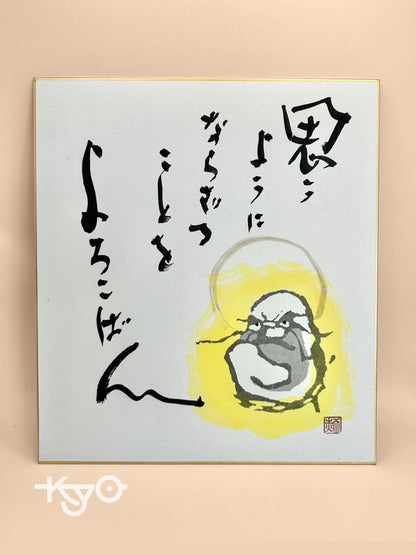 思う
ように
ならざる
ことを
よろこばん
KYO